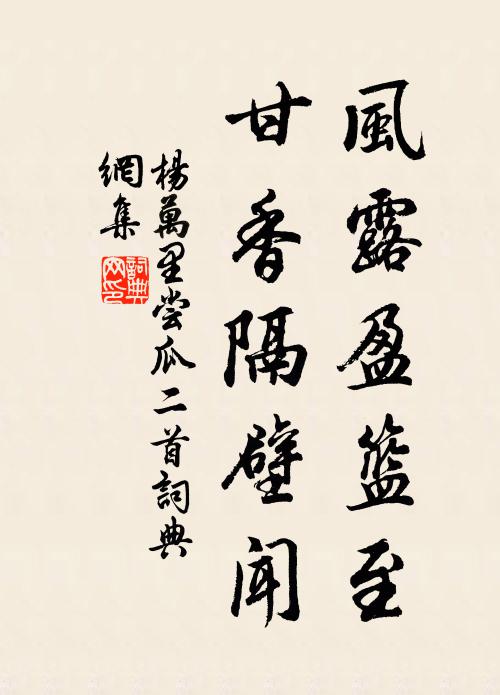 風露盈籃至
甘香隔壁聞
楊萬里嘗瓜二首詞典
網集
詞典
网印